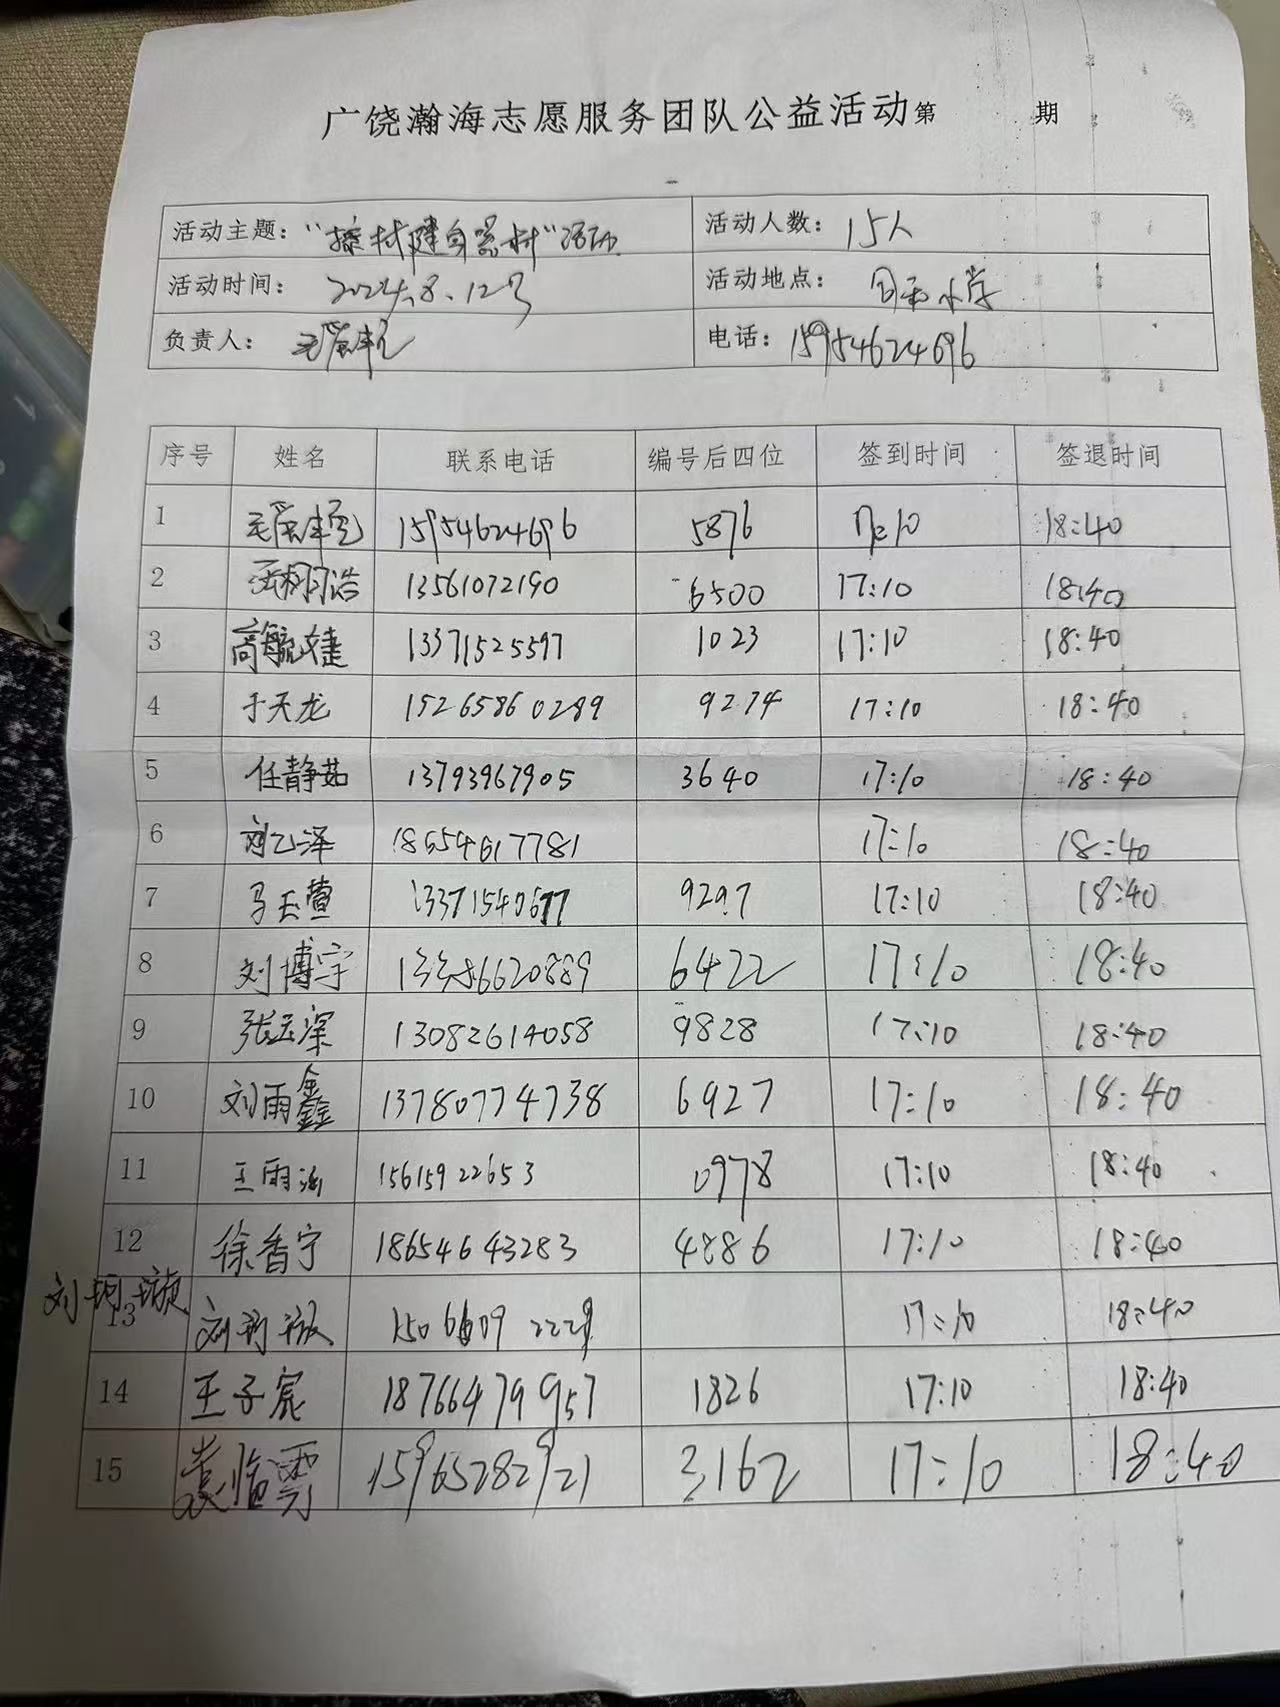 广饶瀚海志愿服务团队公益活动第 期
活动主题： 活动 活动人数：15人
活动时间：2024.8.12号 活动地点：小学
负责人： 电话：15954624696
序号 姓名 联系电话 编号后四位 签到时间 签退时间
1 15954624696 5876 17:10 18:40
2 浩 13561072190 6500 17:10 18:40
3 高毓婕 13371525597 1023 17:10 18:40
4 于天龙 15265860289 9274 17:10 18:40
5 任静茹 13793967905 3640 17:10 18:40
6 刘乙泽 18654617781 17:10 18:40
7 马玉萱 13371540677 9297 17:10 18:40
8 刘博宇 6422 17:10 18:40
9 张云深 13082614058 9828 17:10 18:40
10 刘雨鑫 13780774738 6927 17:10 18:40
11 王雨涵 15615922653 0978 17:10 18:40
12 徐香宁 18654643283 4886 17:10 18:40
刘珂璇
13 刘珂璇 17:10 18:40
14 王子宸 18766479957 1826 17:10 18:40
15 袁临雪 15965282921 3162 17:10 18:40